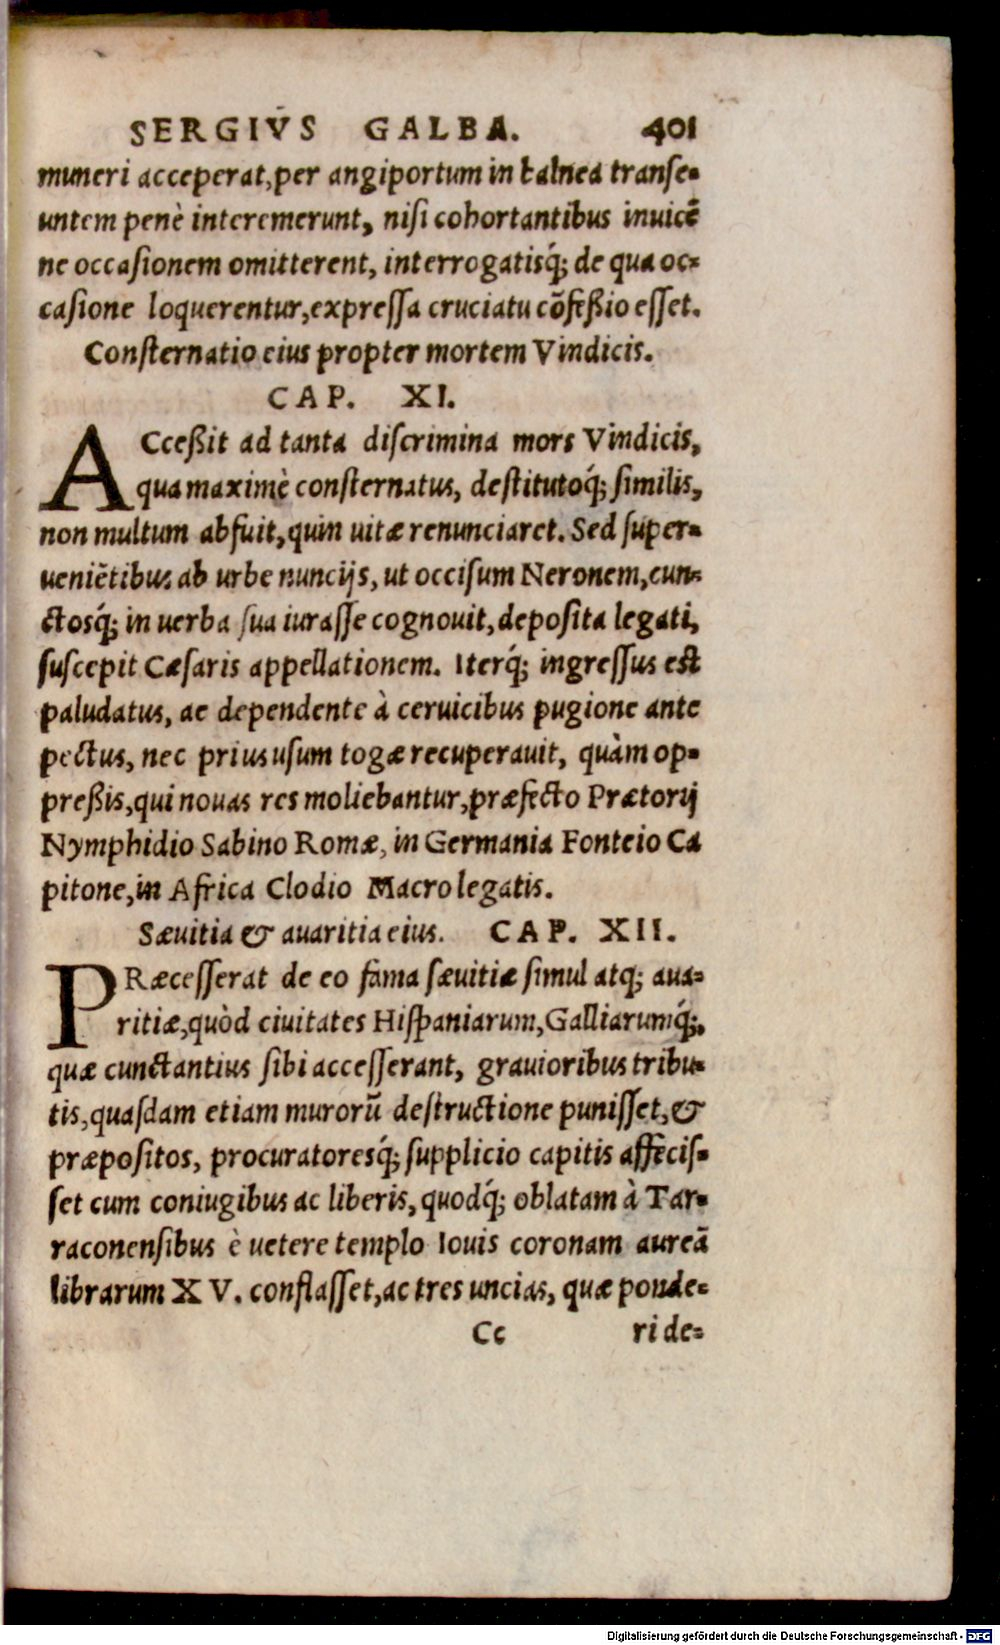 SERGIVS GALBA. 401
muneri acceperat, per angiportum in balnea transe-
untem penè interemerunt, nisi cohortantibus inuicē
ne occasionem omitterent, interrogatisq́; de qua oc-
casione loquerentur, expressa cruciatu cōfeßio esset.
Consternatio eius propter mortem Vindicis.
CAP. XI.
ACceßit ad tanta discrimina mors Vindicis,
qua maximè consternatus, destitutoq́; similis,
non multum abfuit, quin uitæ renunciaret. Sed super-
ueniētibus ab urbe nuncijs, ut occisum Neronem, cun-
ctosq́; in uerba sua iurasse cognouit, deposita legati,
suscepit Cæsaris appellationem. Iterq́; ingressus est
paludatus, ac dependente à ceruicibus pugione ante
pectus, nec prius usum togæ recuperauit, quàm op-
preßis, qui nouas res moliebantur, præfecto Prætorij
Nymphidio Sabino Romæ, in Germania Fonteio Ca
pitone, in Africa Clodio Macro legatis.
Sæuitia & auaritia eius. CAP. XII.
PRæcesserat de eo fama sæuitiæ simul atq; aua-
ritiæ, quòd ciuitates Hispaniarum, Galliarumq́;,
quæ cunctantius sibi accesserant, grauioribus tribu-
tis, quasdam etiam murorū destructione punisset, &
præpositos, procuratoresq́; supplicio capitis affecis-
set cum coniugibus ac liberis, quodq́; oblatam à Tar-
raconensibus è uetere templo Iouis coronam aureā
librarum XV. conflasset, ac tres uncias, quæ ponde-
Cc ri de-
Digitalisierung gefördert durch die Deutsche Forschungsgemeinschaft - DFG